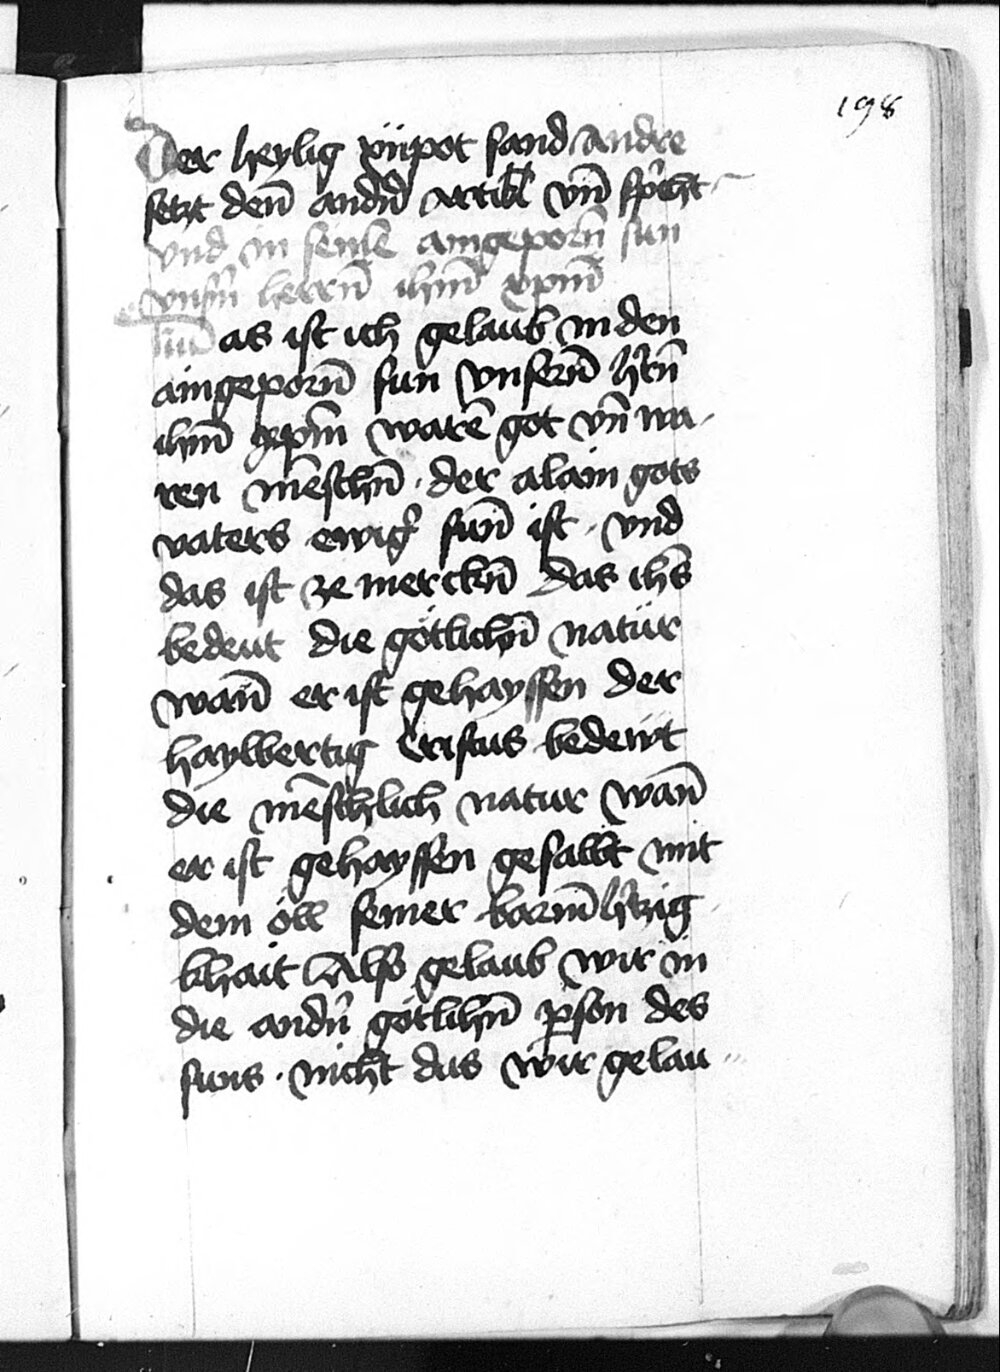 198
Der heylig xiipot sand Andre
setzt den̄ andn̄ Artikl vn̄ spͬcht
vnd in seinē aingeporn̄ sun
vnsn̄ herrn̄ ihm̄ xpm̄
das ist ich gelaub in den
aingeporn̄ sun vnsern̄ hrn̄
ihm̄ xpm̄ warē got vn̄ wa
ren mēschn̄ . der alain gots
vaters ewigͬ sun̄ ist . vnd
das ist ze merckn̄ das ihs̄
bedeut die götlichn̄ natür
wan̄ er ist gehayssen der
haylbertig Cristus bedeẅt
die mēschlich natur wan̄
er ist gehayssen gesalbt mit
dem öll seiner barm̄hͬtzig
khait Also gelaub wir in
die andn̄ götlihn̄ ꝑson des
suns . nicht das wir gelau